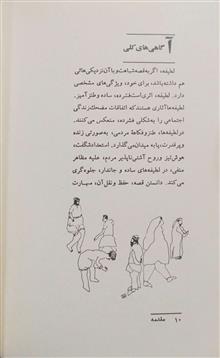 آگاهی‌های کلی
لطیفه، اگر به قصه شباهت و با آن نزدیکی‌هائی
هم داشته باشد، برای خود، ویژگی‌های مشخصی
دارد. لطیفه، اثری است فشرده، ساده و طنزآمیز.
لطیفه‌ها آثاری هستند که اتفاقات مضحک زندگی
اجتماعی را به شکلی فشرده، منعکس می‌کنند.
در لطیفه‌ها، طنز و فکاهۀ مردمی، به صورتی زنده
و پرقدرت، پا به میدان می‌گذارد. استعداد شگفت،
هوش تیز و روح آشتی‌ناپذیر مردم، علیه مظاهر
منفی، در لطیفه‌های ساده و جاندار، جلوه‌گری
می‌کند. دانستن قصه، حفظ و نقل آن، مهارت
۱۰ مقدمه